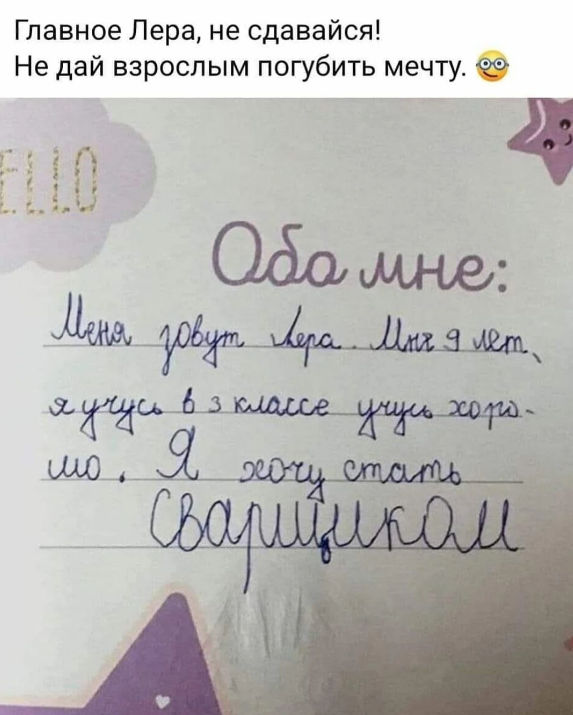 Главное Лера, не сдавайся!
Не дай взрослым погубить мечту.
ELLO
Обо мне:
Меня зовут Лера. Мне 9 лет,
я учусь в 3 классе учусь хоро-
шо. Я хочу стать
Сварщиком